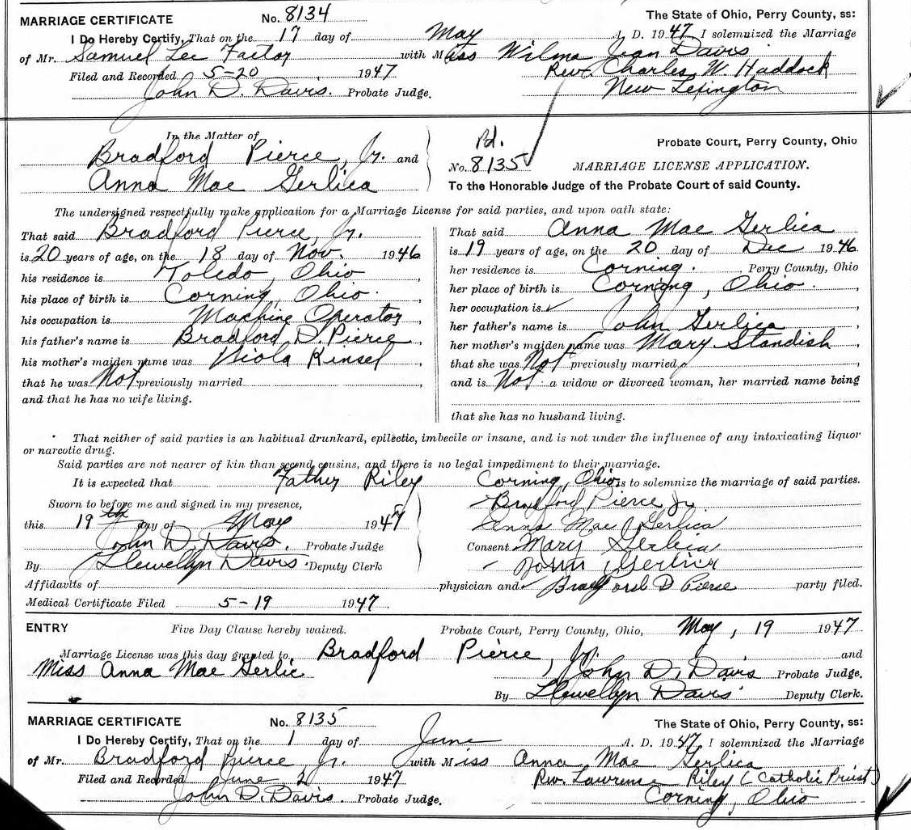 MARRIAGE CERTIFICATE No. 8134 The State of Ohio, Perry County, ss:
I Do Hereby Certify, That on the 17 day of May A. D. 1947 I solemnized the Marriage
of Mr. Samuel Lee Factor with Miss Wilma Jean Davis
Filed and Recorded 5-20 1947 Rev. Charles W. Haddock
John D. Davis. Probate Judge. New Lexington
In the Matter of
Bradford Pierce, Jr. and
Anna Mae Gerlica
Pd.
No. 8135
Probate Court, Perry County, Ohio
MARRIAGE LICENSE APPLICATION.
To the Honorable Judge of the Probate Court of said County.
The undersigned respectfully make application for a Marriage License for said parties, and upon oath state:
That said Bradford Pierce, Jr.
is 20 years of age, on the 18 day of Nov. 1946
his residence is Toledo, Ohio
his place of birth is Corning, Ohio.
his occupation is Machine Operator
his father's name is Bradford D. Pierce
his mother's maiden name was Viola Kinsel
that he was Not previously married
and that he has no wife living.
That said Anna Mae Gerlica
is 19 years of age, on the 20 day of Dec 1946
her residence is Corning. Perry County, Ohio
her place of birth is Corning, Ohio.
her occupation is
her father's name is John Gerlica
her mother's maiden name was Mary Standish
that she was Not previously married
and is Not a widow or divorced woman, her married name being
that she has no husband living.
That neither of said parties is an habitual drunkard, epileptic, imbecile or insane, and is not under the influence of any intoxicating liquor
or narcotic drug.
Said parties are not nearer of kin than second cousins, and there is no legal impediment to their marriage.
It is expected that Father Riley Corning, Ohio is to solemnize the marriage of said parties.
Sworn to before me and signed in my presence,
this 19th day of May 1947
John D. Davis. Probate Judge
By Llewellyn Davis. Deputy Clerk
Bradford Pierce Jr.
Anna Mae Gerlica
Consent Mary Gerlica
John Gerlica
Affidavits of physician and Bradford D Pierce party filed.
Medical Certificate Filed 5-19 1947
ENTRY Five Day Clause hereby waived. Probate Court, Perry County, Ohio, May, 19 1947
Marriage License was this day granted to Bradford Pierce, Jr. and
Miss Anna Mae Gerlic John D. Davis Probate Judge
By Llewellyn Davis Deputy Clerk.
MARRIAGE CERTIFICATE No. 8135 The State of Ohio, Perry County, ss:
I Do Hereby Certify, That on the 1 day of June A. D. 1947 I solemnized the Marriage
of Mr. Bradford Pierce Jr. with Miss Anna Mae Gerlica
Filed and Recorded June 2 1947 Rev. Lawrence Riley (Catholic Priest)
John D. Davis. Probate Judge. Corning, Ohio